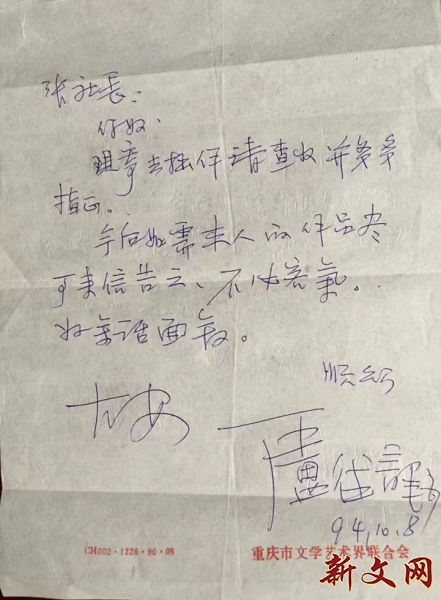 张社长:
你好!
现寄去拙作请查收并多多
指正。
今后如需本人的作品尽
可来信告之、不必客气。
好多话面叙。
顺颂
大安
盧
94.10.8
CH002·1226·90·08
重庆市文学艺术界联合会
新文网